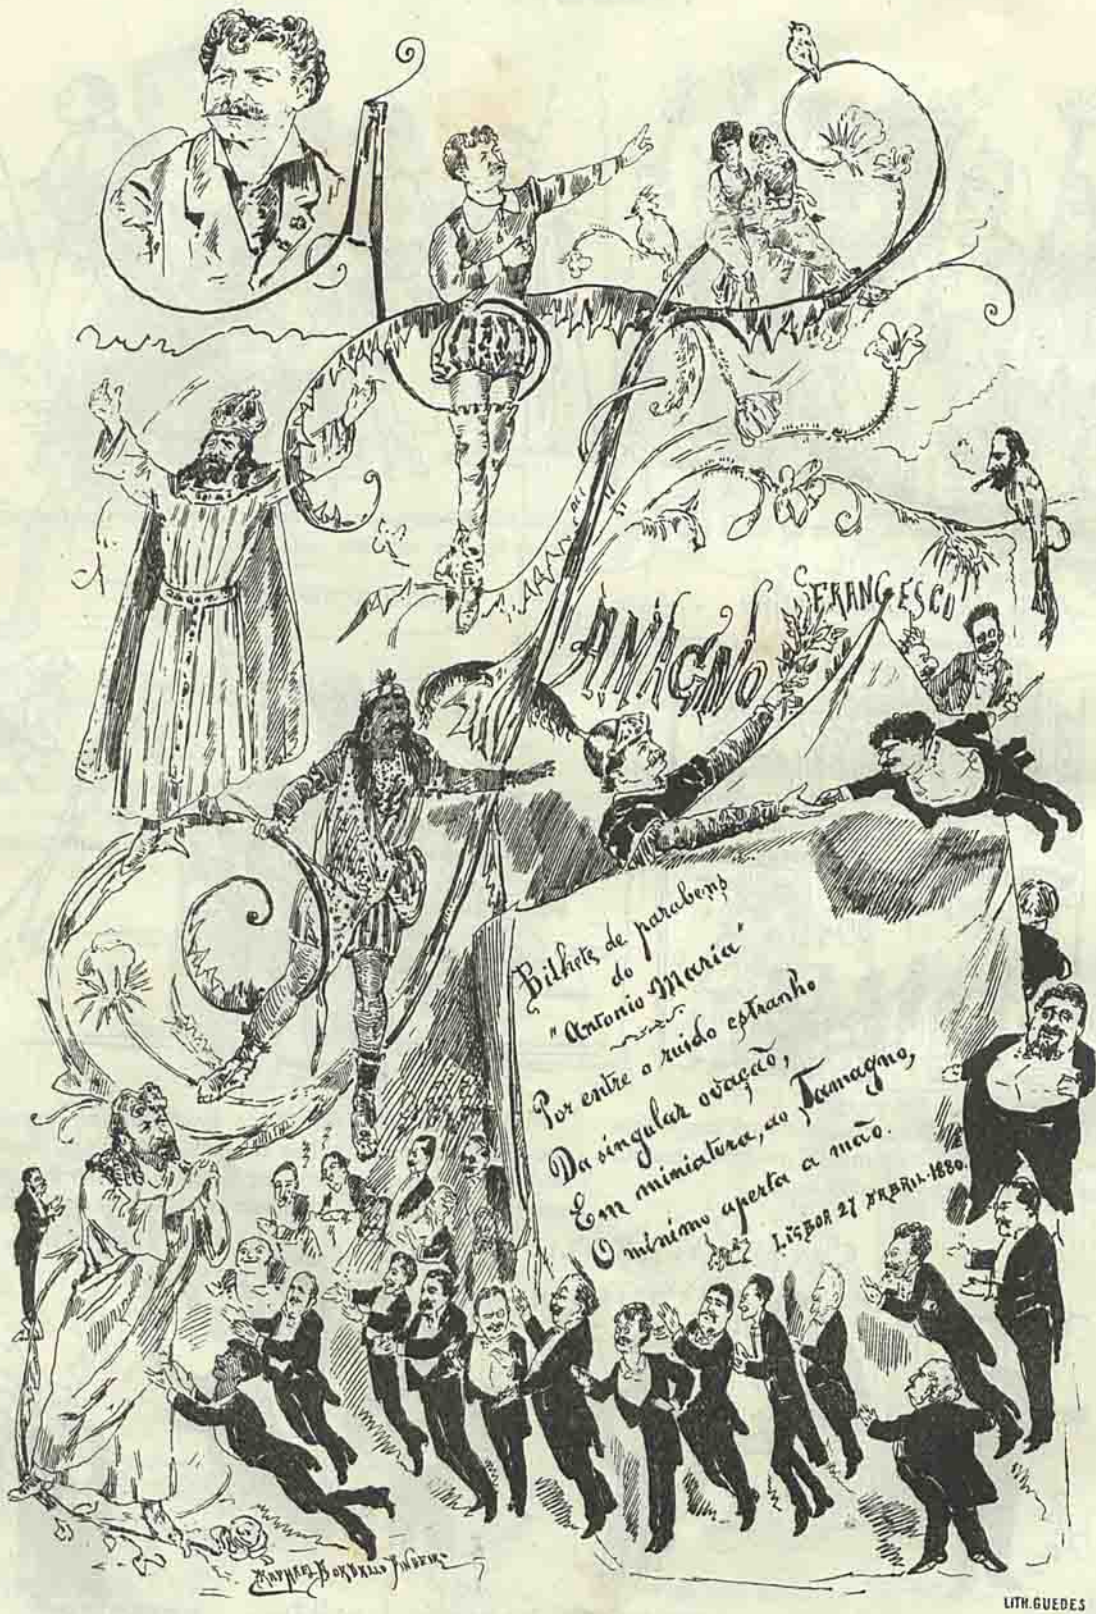 FRANCESCO
TAMAGNO
Bilhete de parabens
do
"Antonio Maria"
Por entre o ruido estranho
Da singular ovação,
Em miniatura, ao Tamagno,
O minimo aperta a mão.
LISBOA 27 D'ABRIL-1880.
RAPHAEL BORDALLO PINHEIRO
LITH. GUEDES